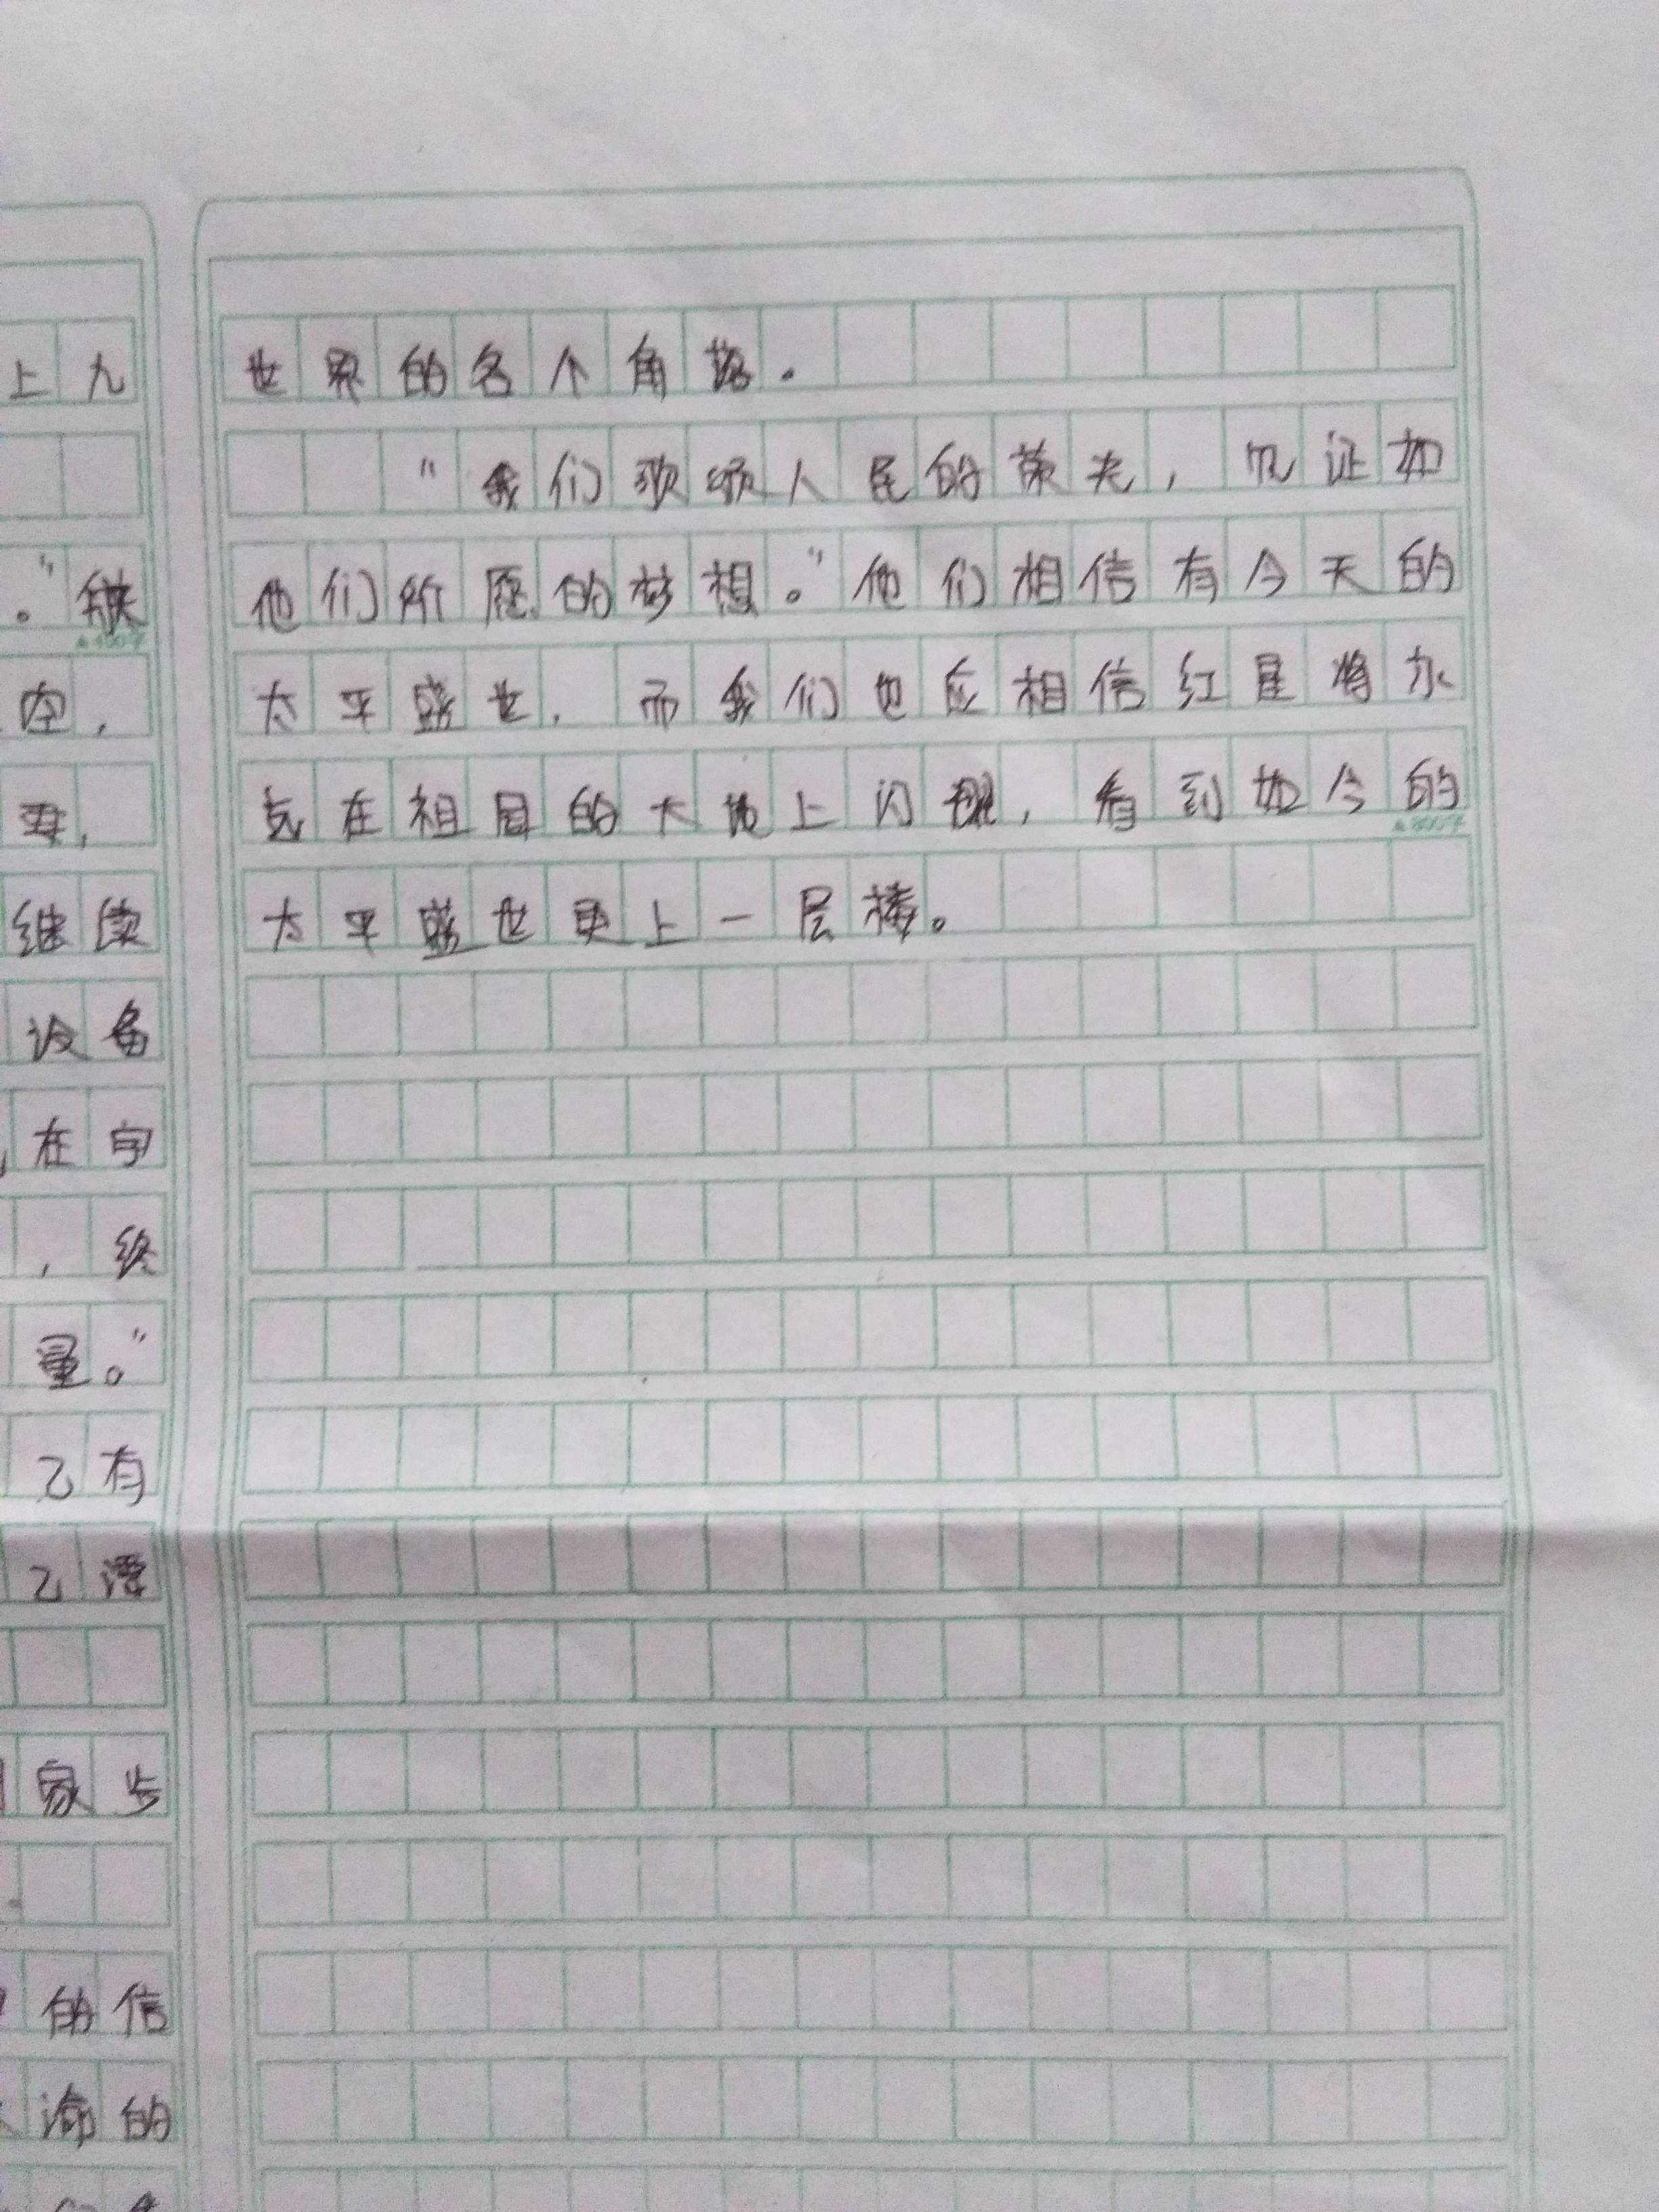 上九
。”继
空，
继续
设备
，在宇
，终
量。”
乙有
乙潭
家步
的信
渝的
世界的各个角落.
“我们歌颂人民的荣光，见证如
▲400字
他们所愿的梦想。”他们相信有今天的
太平盛世，而我们也应相信红星将永
远在祖国的大地上闪耀，看到如今的
▲800字
太平盛世更上一层楼。